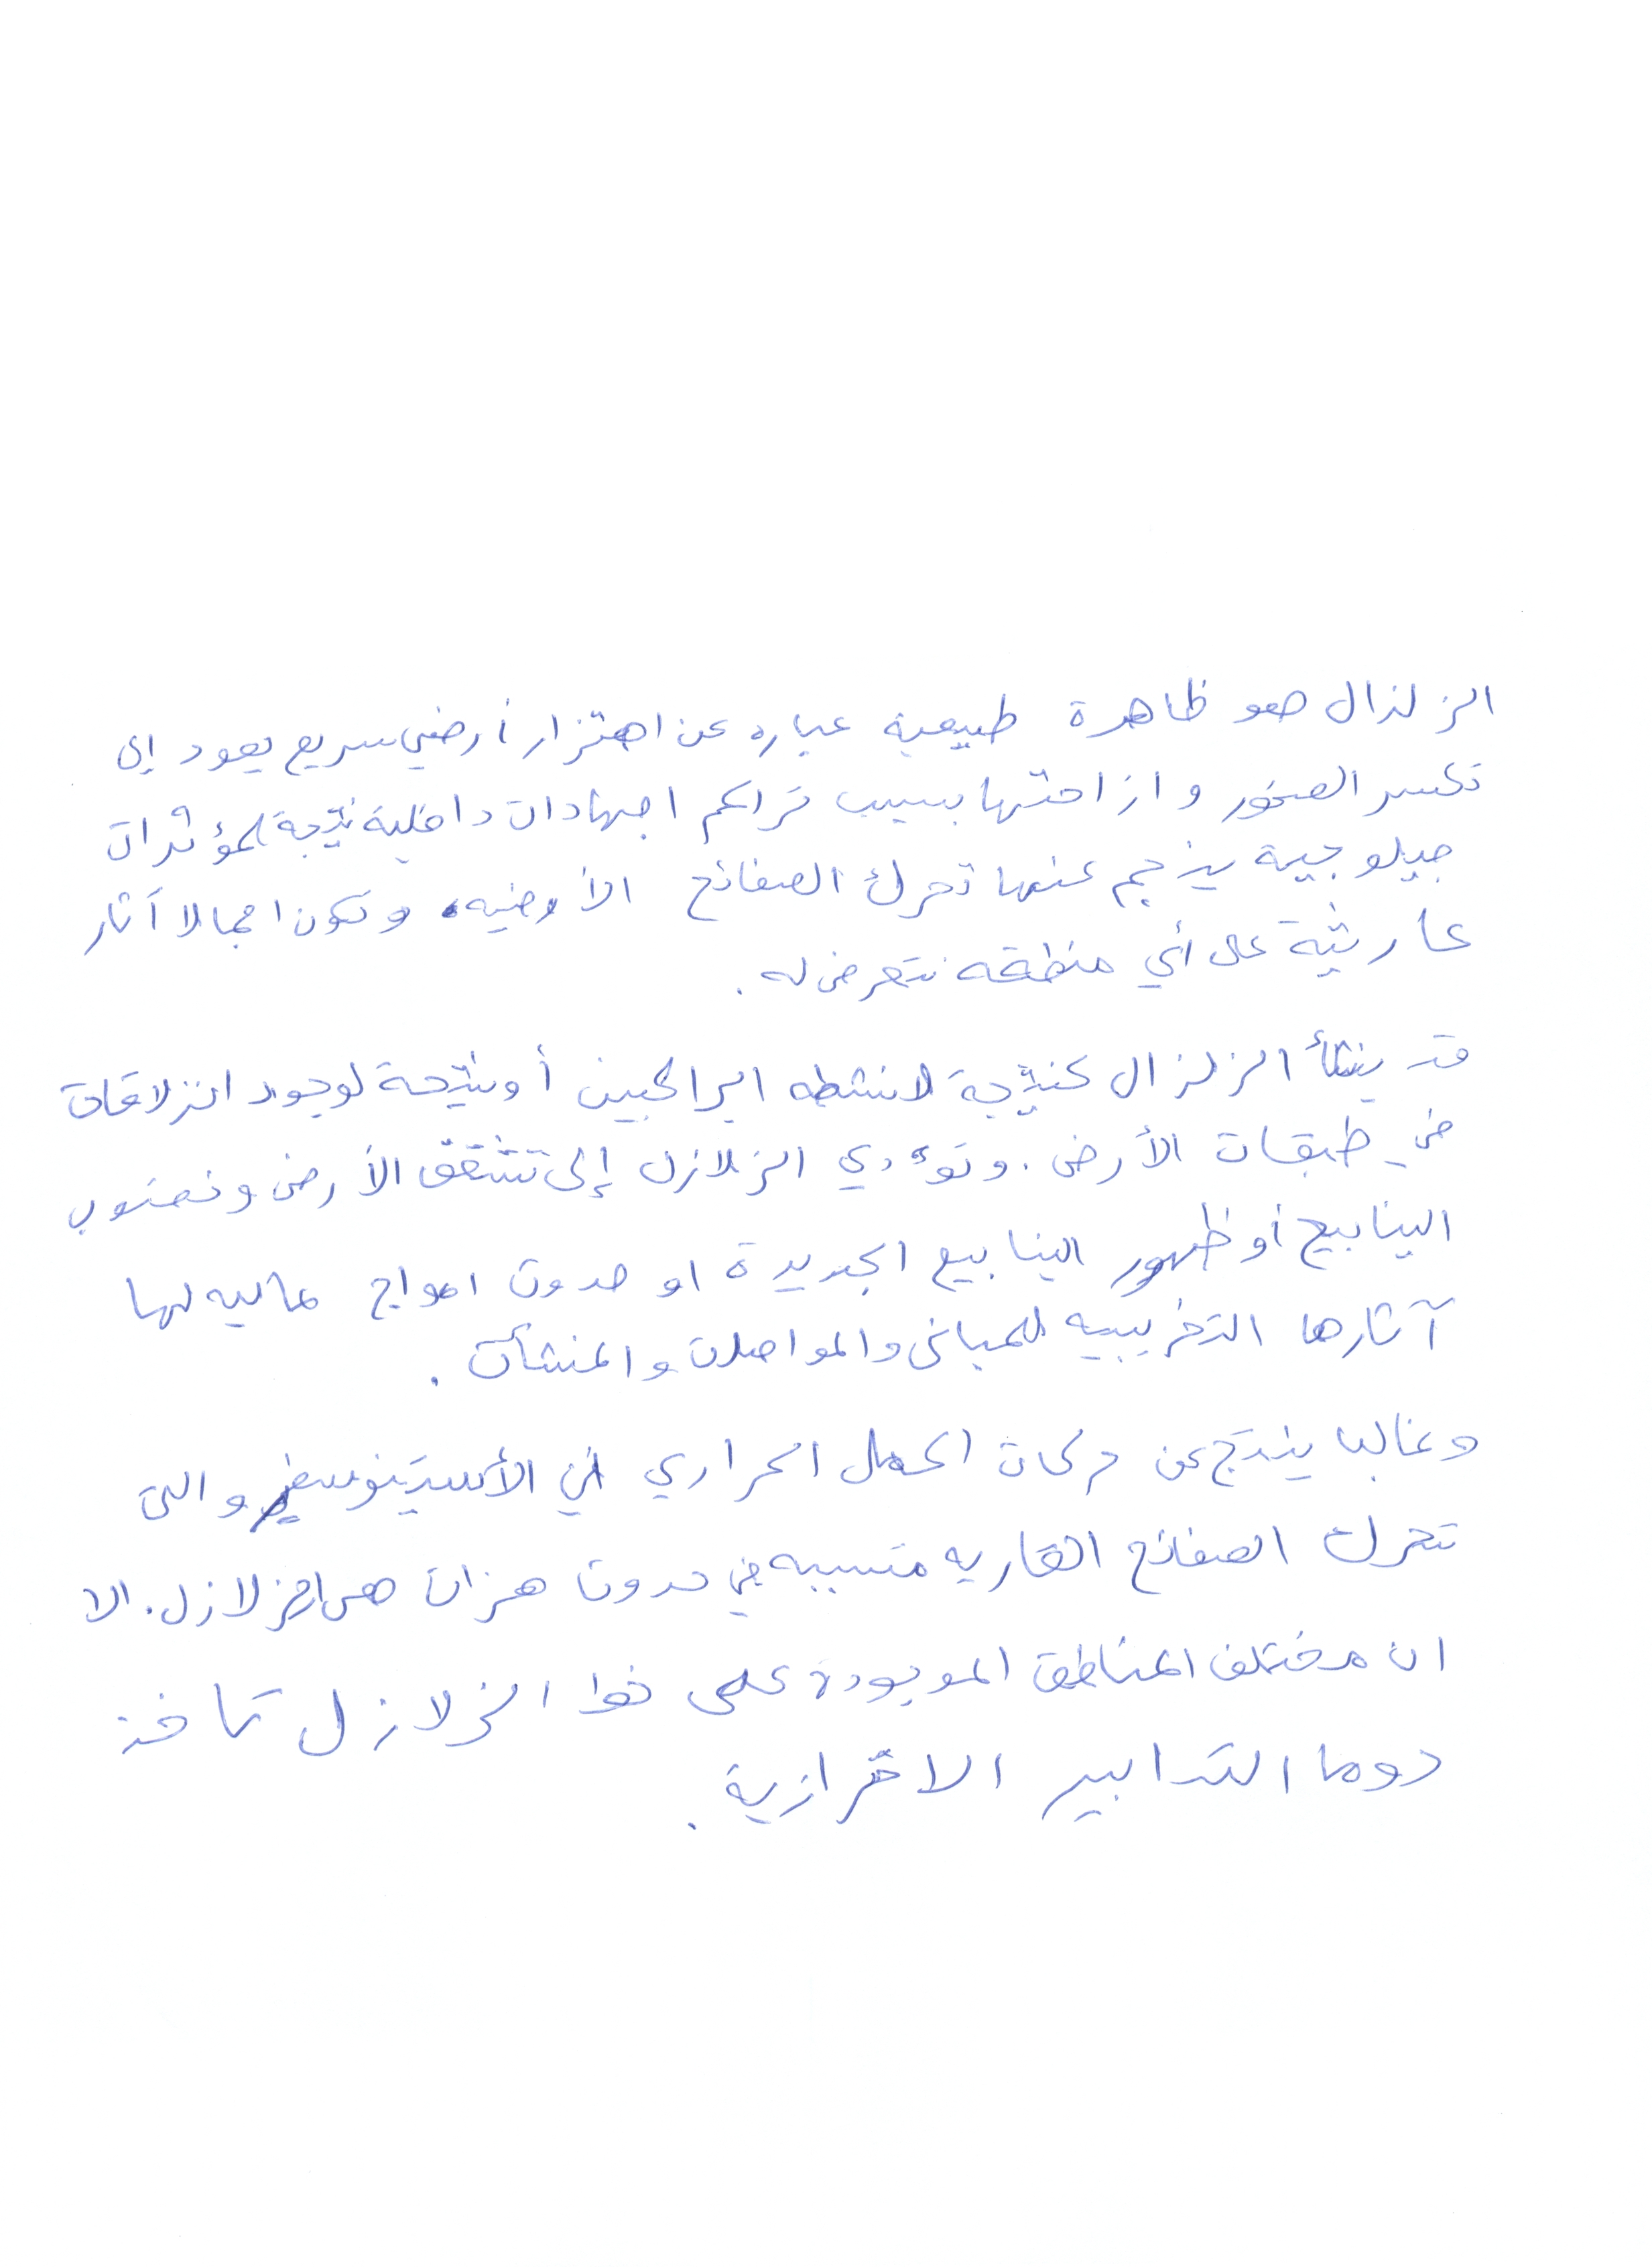 الزلذال هو ظاهرة طبيعية عباره عن اهتزاز أرضي سريع يعود إلى
تكسر الصخور وازاحتها بسبب تراكم اجهادات داخلية نتيجة لمؤثرات
جيلوجية ينجم عنها تحرك الصفائح الأرضيه، وتكون اجمالا آثار
عارثية على أي منطقه تتعرض له.
قد ينشأ الزلزال كنتيجة لانشطه البراكبين أو نتيجة لوجود انزلاقات
في طبقات الأرض. وتؤدي الزلازل إلى تشقق الأرض ونضوب
الينابيع أو ظهور الينابيع الجديدة او حدوث امواج عاليه لها
آثارها التخريبيه للمباني والمواصلات والمنشآت.
وغالبا ينتج عن حركات الحمل الحراري في الأسيتنوسفير والتي
تتحرك الصفائح القاريه متسببه في حدوث هزات هي الزلازل. الا
ان مختلف المناطق الموجودة على خط الزلازل تأخذ
دوما التدابير الاحترازية.